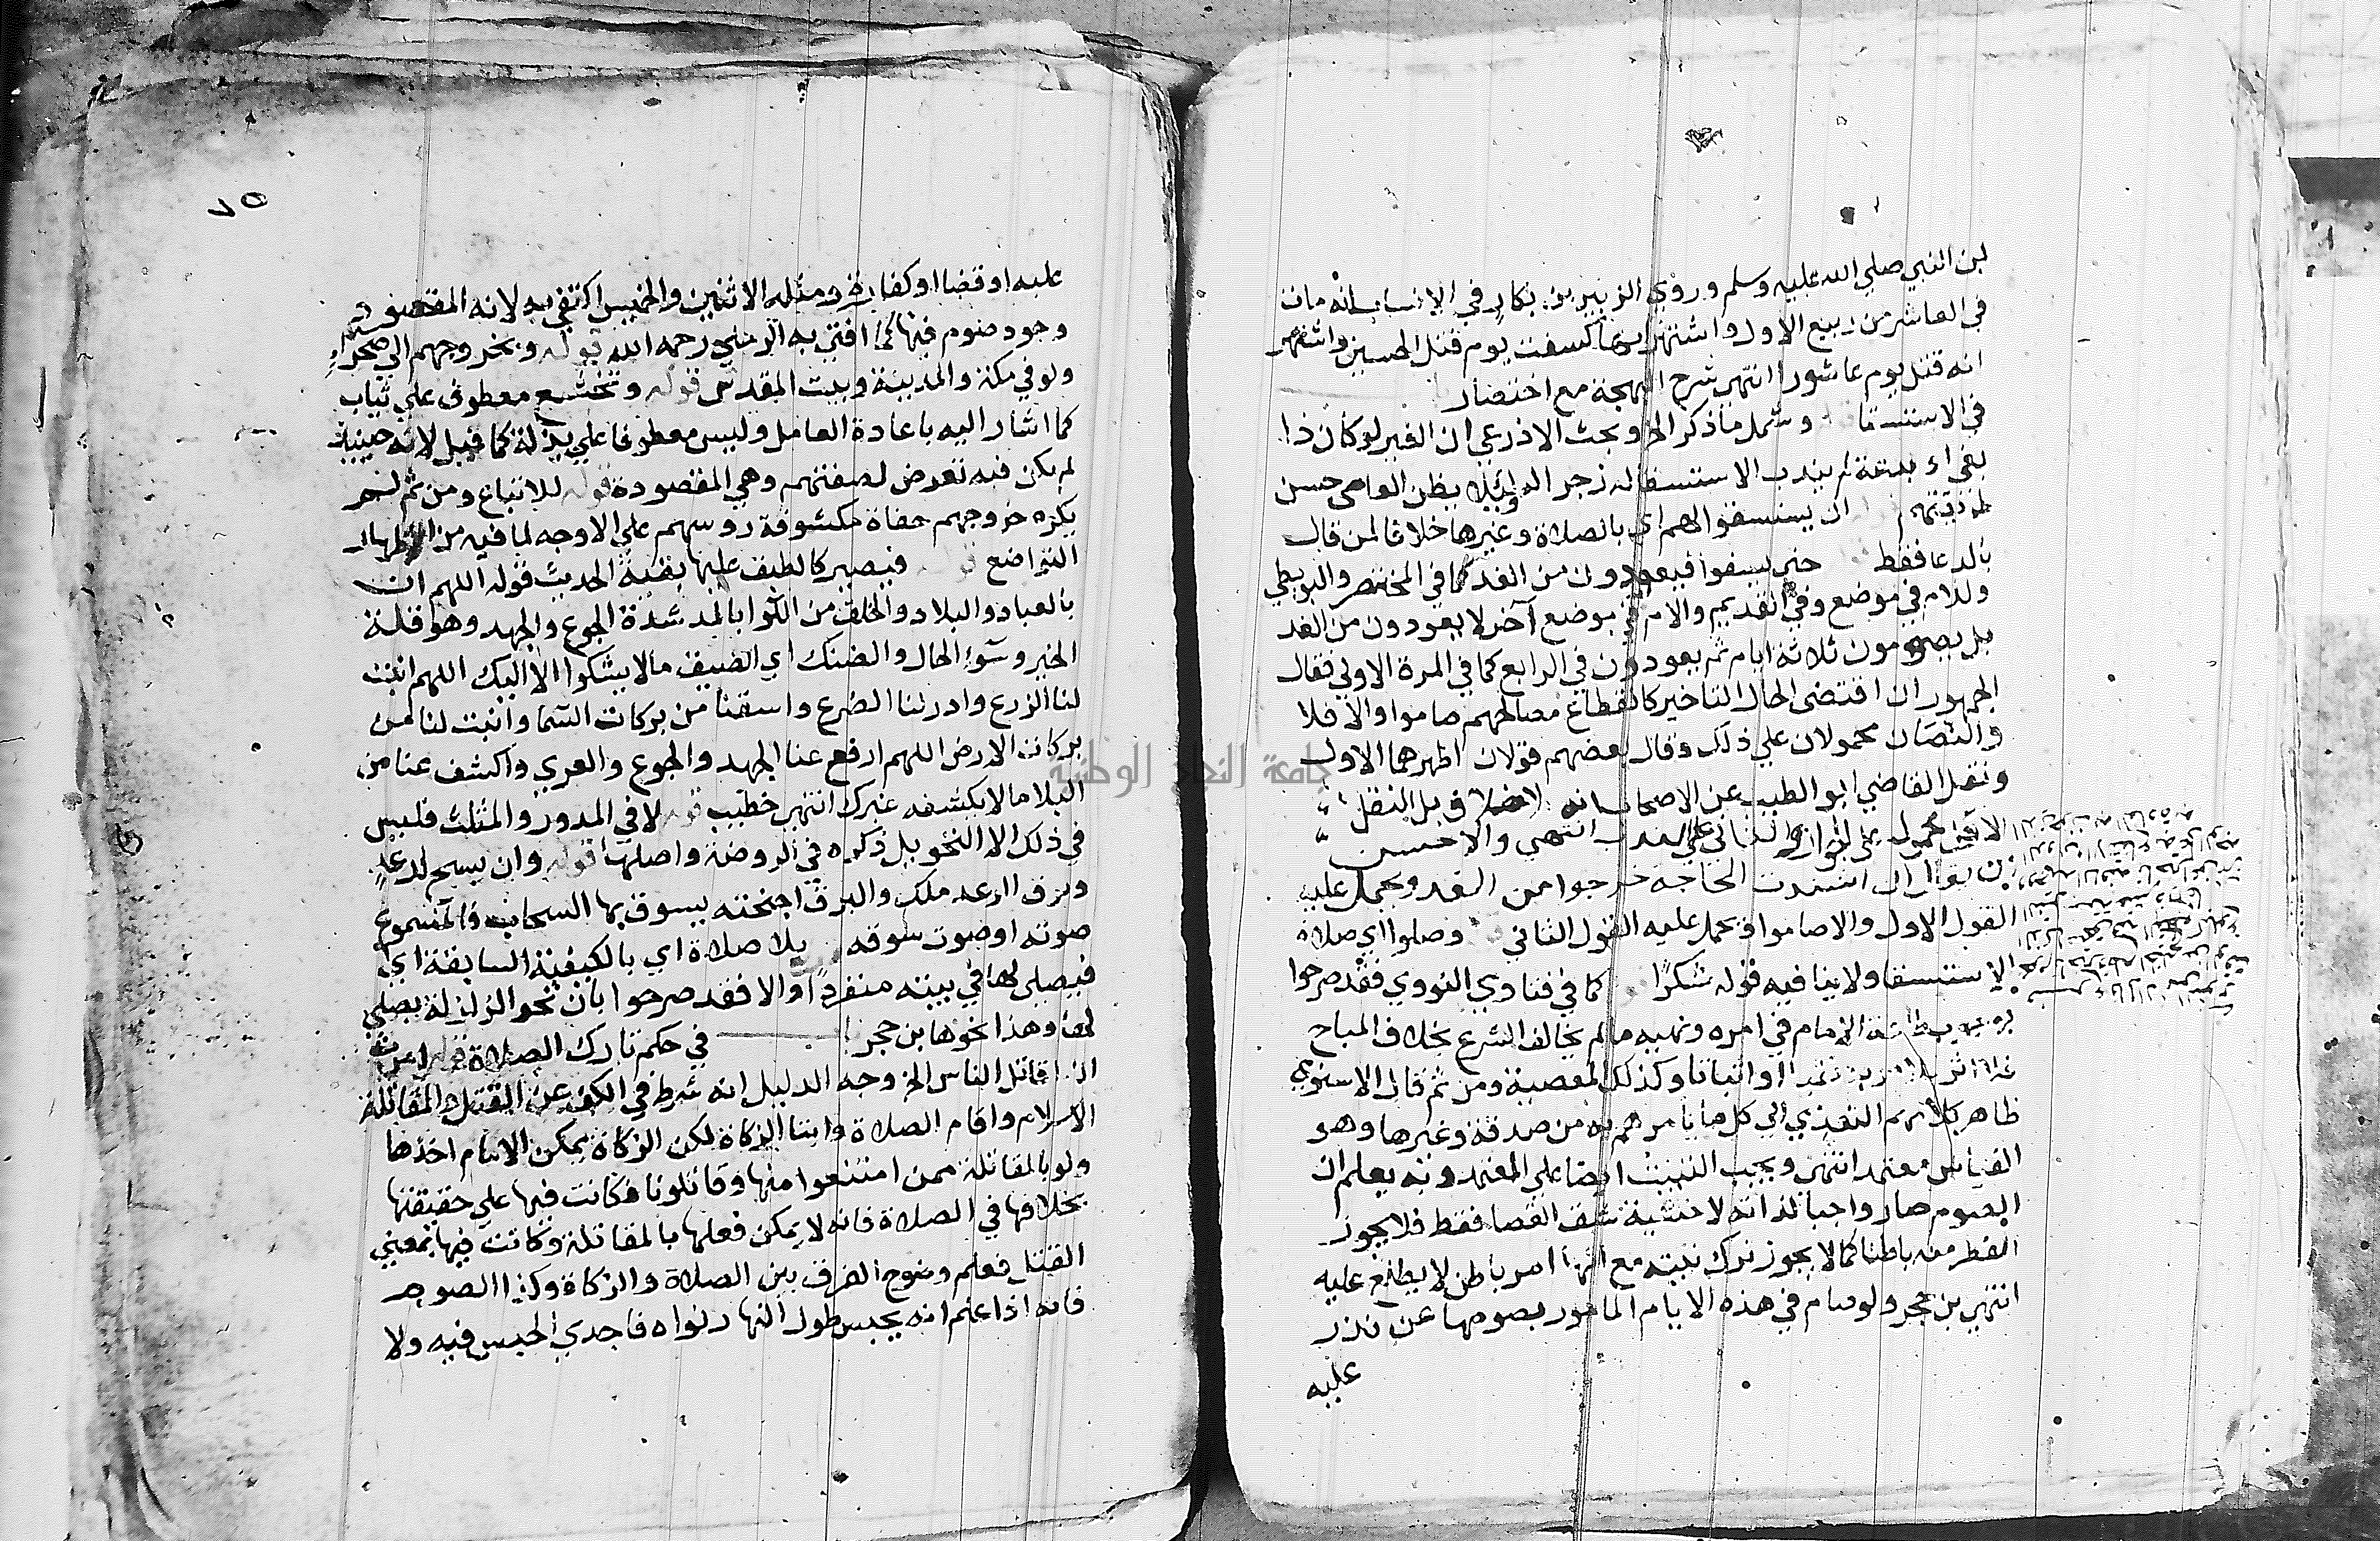 لبن النبي صلي الله عليه وسلم وروي الزبير بن بكار في الانساب انه مات
في العاشر من ربيع الاول واشتهر انها كسفت يوم قتل الحسين واشتهر
انه قتل يوم عاشورا انتهى شرح البهجة مع اختصار
في الاستسقا وشمل ما ذكر الخ وبحث الاذرعي ان الغير لو كان ذا
بدعة لم يندب الاستسقا له زجرا له ولئلا يظن العامي حسن
طريقتهم ان يستسقوا لهم اي بالصلاة وغيرها خلافا لمن قال
بالدعا فقط حتى يسقوا فيعودون من الغد كما في المختصر والبويطي
والام في موضع وفي القديم والام في موضع آخر لا يعودون من الغد
بل يصومون ثلاثة ايام ثم يعودون في الرابع كما في المرة الاولي فقال
الجمهور ان اقتضى الحال التاخير كانقطاع مصالحهم صاموا والا فلا
والنصان محمولان علي ذلك وقال بعضهم قولان اظهرهما الاول
ونقل القاضي ابو الطيب عن الاصحاب انه لا خلاف بل النقل
الاول محمول على الجواز والثاني على الندب انتهي والاحسن
ان يقال ان اشتدت الحاجة خرجوا من الغد ويحمل عليه
القول الاول والا صاموا ويحمل عليه القول الثاني وصلوا اي صلاة
الاستسقا ولا ينافيه قوله شكرا كما في فتاوي النووي فقد صرحوا
طاعة الامام في امره ونهيه ما لم يخالف الشرع بخلاف المباح
وكذلك المعصية ومن ثم قال الاسنوي
ظاهر كلامهم التعدي الي كل ما يامرهم به من صدقة وغيرها وهو
القياس معتمد انتهى ويجب التبييت ايضا على المعتمد وبه يعلم ان
الصوم صار واجبا لذاته لا خشية شق العصا فقط فلا يجوز
الفطر منه باطنا كما لا يجوز ترك نيته مع انها امر باطن لا يطلع عليه
انتهى بن حجر ولو صام في هذه الايام المامور بصومها عن نذر
عليه
٧٥
عليه او قضا او كفارة ومثلها الاثنين والخميس اكتفي به لانه المقصود
وجود صوم فيها كما افتى به الرملي رحمه الله قوله وبخروجهم الي صحراء
ولو في مكة والمدينة وبيت المقدس قوله وتخشع معطوف علي ثياب
كما اشار اليه باعادة العامل وليس معطوفا علي بذلة كما قيل لانه حينيذ
لم يكن فيه تعرض لصفتهم وهي المقصودة قوله للاتباع ومن ثم لم
يكره خروجهم حفاة مكشوفة روسهم علي الاوجه لما فيه من اظهار
التواضع فيصير كالطيف عليها بقية الحديث قوله اللهم ان
بالعباد والبلاد والخلق من اللاوا بالمد شدة الجوع والجهد وهو قلة
الخير وسوء الحال والضنك اي الضيق ما لا يشكوا الا اليك اللهم انبت
لنا الزرع وادر لنا الضرع واسقنا من بركات السما وانبت لنا من
بركات الارض اللهم ارفع عنا الجهد والجوع والعري واكشف عنا من
البلا ما لا يكشفه غيرك انتهى خطيب قوله لا في المدور والمثلث فليس
في ذلك الا التحويل ذكره في الروضة واصلها قوله وان يسبح لرعد
وبرق الرعد ملك والبرق اجنحته يسوق بها السحاب فالمسموع
صوته او صوت سوقه بلا صلاة اي بالكيفية السابقة اي
فيصلى لها في بيته منفردا والا فقد صرحوا بان نحو الزلزلة يصلي
لها وهذا نحوها بن حجر في حكم تارك الصلاة قوله امرت
ان اقاتل الناس الخ وجه الدليل انه شرط في الكف عن القتل والمقاتلة
الاسلام واقام الصلاة وايتا الزكاة لكن الزكاة يمكن الامام اخذها
ولو بالمقاتلة ممن امتنعوا منها وقاتلونا فكانت فيها علي حقيقتها
بخلافها في الصلاة فانه لا يمكن فعلها بالمقاتلة وكانت فيها بمعني
القتل فعلم وضوح الفرق بين الصلاة والزكاة وكذا الصوم
فانه اذا علم انه يحبس طول النهار نواه فاجدي الحبس فيه ولا
جامعة النجاح الوطنية